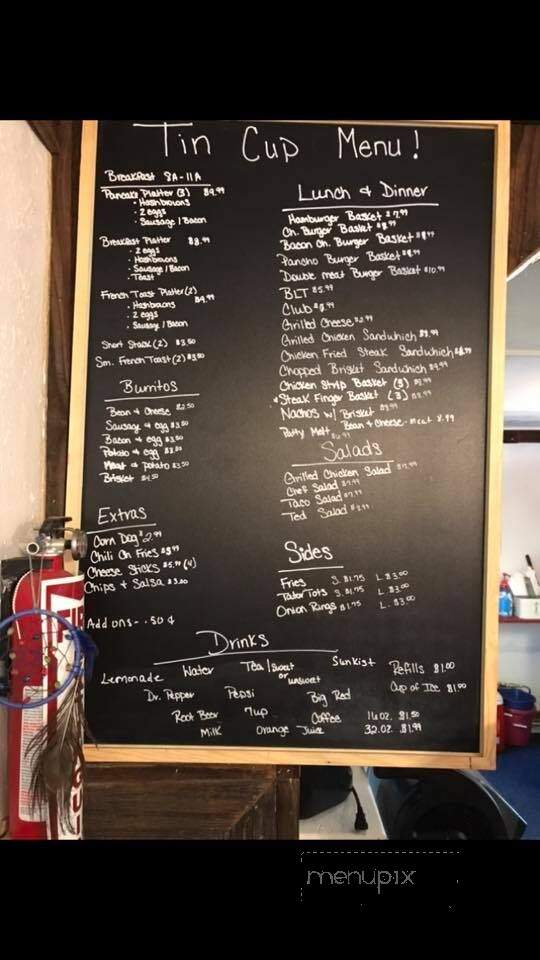 Tin Cup Menu!
Breakfast 8A-11A
Pancake Platter (3) $9.99
• Hashbrowns
• 2 eggs
• Sausage/Bacon
Breakfast Platter $8.99
• 2 eggs
• Hashbrowns
• Sausage/Bacon
• Toast
French Toast Platter (2) $9.99
• Hashbrowns
• 2 eggs
• Sausage/Bacon
Short Stack (2) $3.50
Sm. French Toast (2) $3.50
Burritos
Bean & Cheese $2.50
Sausage & egg $3.50
Bacon & egg $3.50
Potato & egg
Meat & potato $3.50
Brisket $4.50
Extras
Corn Dog $2.99
Chili Ch Fries
Cheese Sticks $5.99 (4)
Chips & Salsa $3.00
Add ons - .50¢
Lunch & Dinner
Hamburger Basket $7.99
Ch. Burger Basket
Bacon Ch. Burger Basket
Pancho Burger Basket
Double meat Burger Basket $10.99
BLT $5.99
Club
Grilled Cheese $2.99
Grilled Chicken Sandwhich
Chicken Fried Steak Sandwhich
Chopped Brisket Sandwhich
Chicken Strip Basket (3)
Steak Finger Basket (3)
Nachos w/ Brisket
Bean & Cheese - Meat
Patty Melt
Salads
Grilled Chicken Salad
Chef Salad
Taco Salad
Ted Salad
Sides
Fries S. $1.75 L. $3.00
Tator Tots S. $1.75 L. $3.00
Onion Rings $1.75 L. $3.00
Drinks
Lemonade Water Tea/sweet or unsweet Sunkist Refills $1.00
Dr. Pepper Pepsi Big Red Cup of Ice $1.00
Root Beer 7up Coffee 16 oz. $1.50
Milk Orange Juice 32 oz. $1.99
menupix